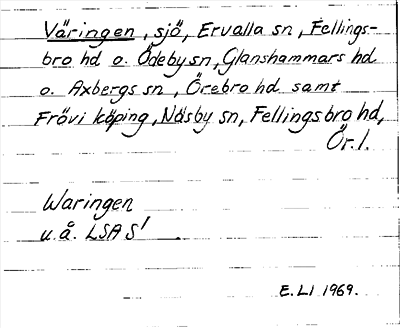 Väringen, sjö, Ervalla sn, Fellings-
bro hd o. Ödeby sn, Glanshammars hd
o. Axbergs sn, Örebro hd samt
Frövi köping, Näsby sn, Fellingsbro hd,
Ör. l.
Waringen
u.å. LSA S1
E. Ll 1969.